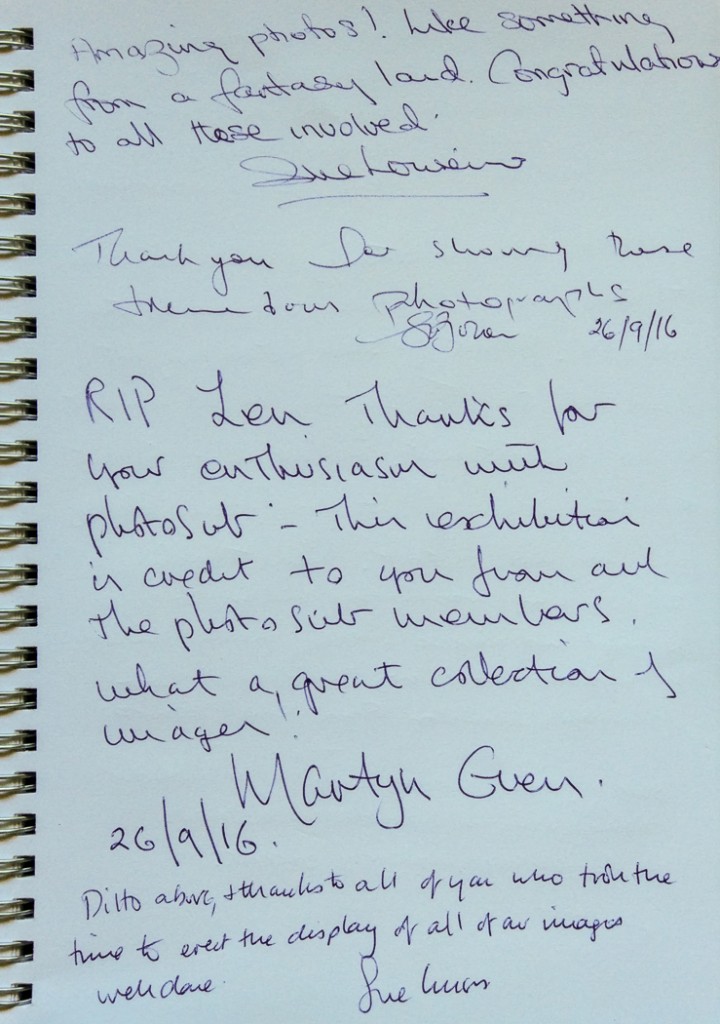 Amazing photos! Like something
from a fantasy land. Congratulations
to all those involved.
Sue
Thank you for showing these
tremendous photographs
26/9/16
RIP Len Thanks for
your enthusiasm with
photosub - This exhibition
is credit to you from all
the photosub members.
what a great collection of
images!
Martyn Guen.
26/9/16.
Ditto above, & thanks to all of you who took the
time to erect the display of all of our images
well done.
Sue